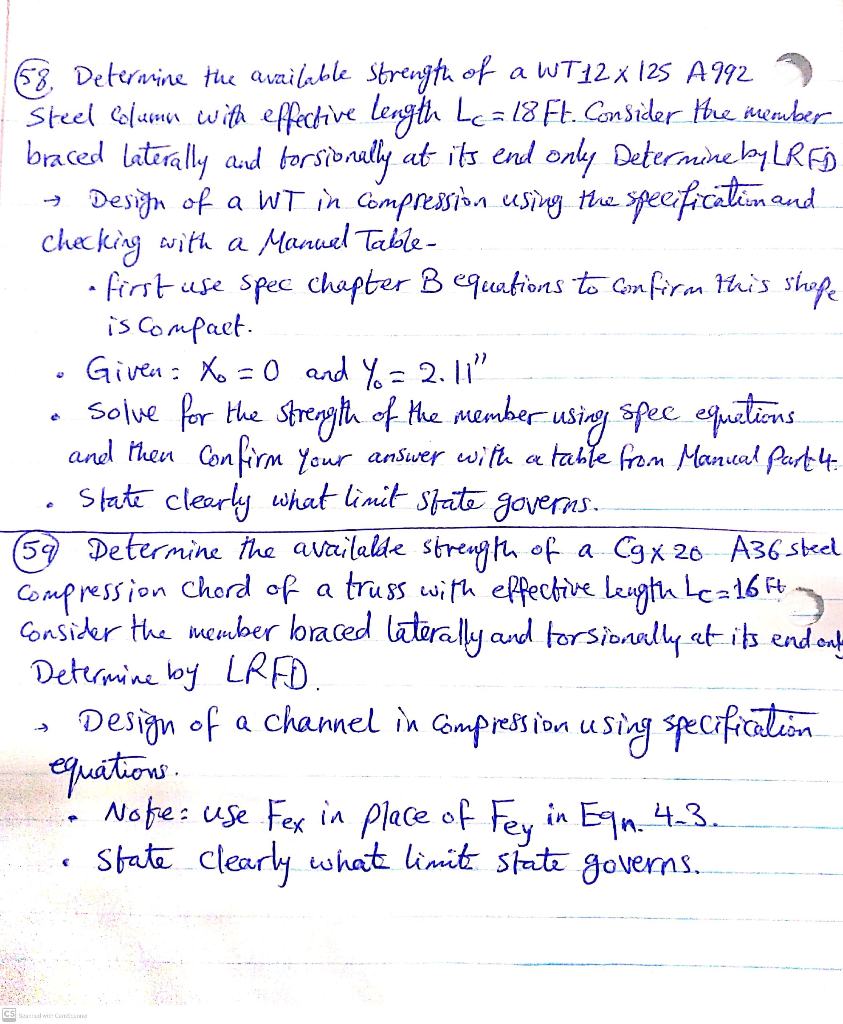 58. Determine the available strength of a WT12 x 125 A992
Steel Column with effective length Lc = 18 Ft. Consider the member
braced laterally and torsionally at its end only Determine by LRFD
→ Design of a WT in compression using the specification and
checking with a Manual Table -
• first use spec chapter B equations to confirm this shape
is compact.
• Given: Xo = 0 and Yo = 2.11"
• Solve for the strength of the member using spec equations
and then Confirm Your answer with a table from Manual Part 4.
• State clearly what limit state governs.
59 Determine the available strength of a C9 x 20 A36 steel
compression chord of a truss with effective length Lc = 16 Ft
Consider the member braced laterally and torsionally at its end only
Determine by LRFD.
→ Design of a channel in compression using specification
equations.
• Note: use Fex in place of Fey in Eqn. 4-3.
• State clearly what limit state governs.
CS Scanned with CamScanner